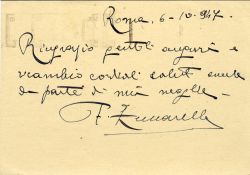 Roma, 6-10-947
Ringrazio gentili auguri e
ricambio cordiali saluti anche
da parte di mia moglie -
F. Zuccarelli